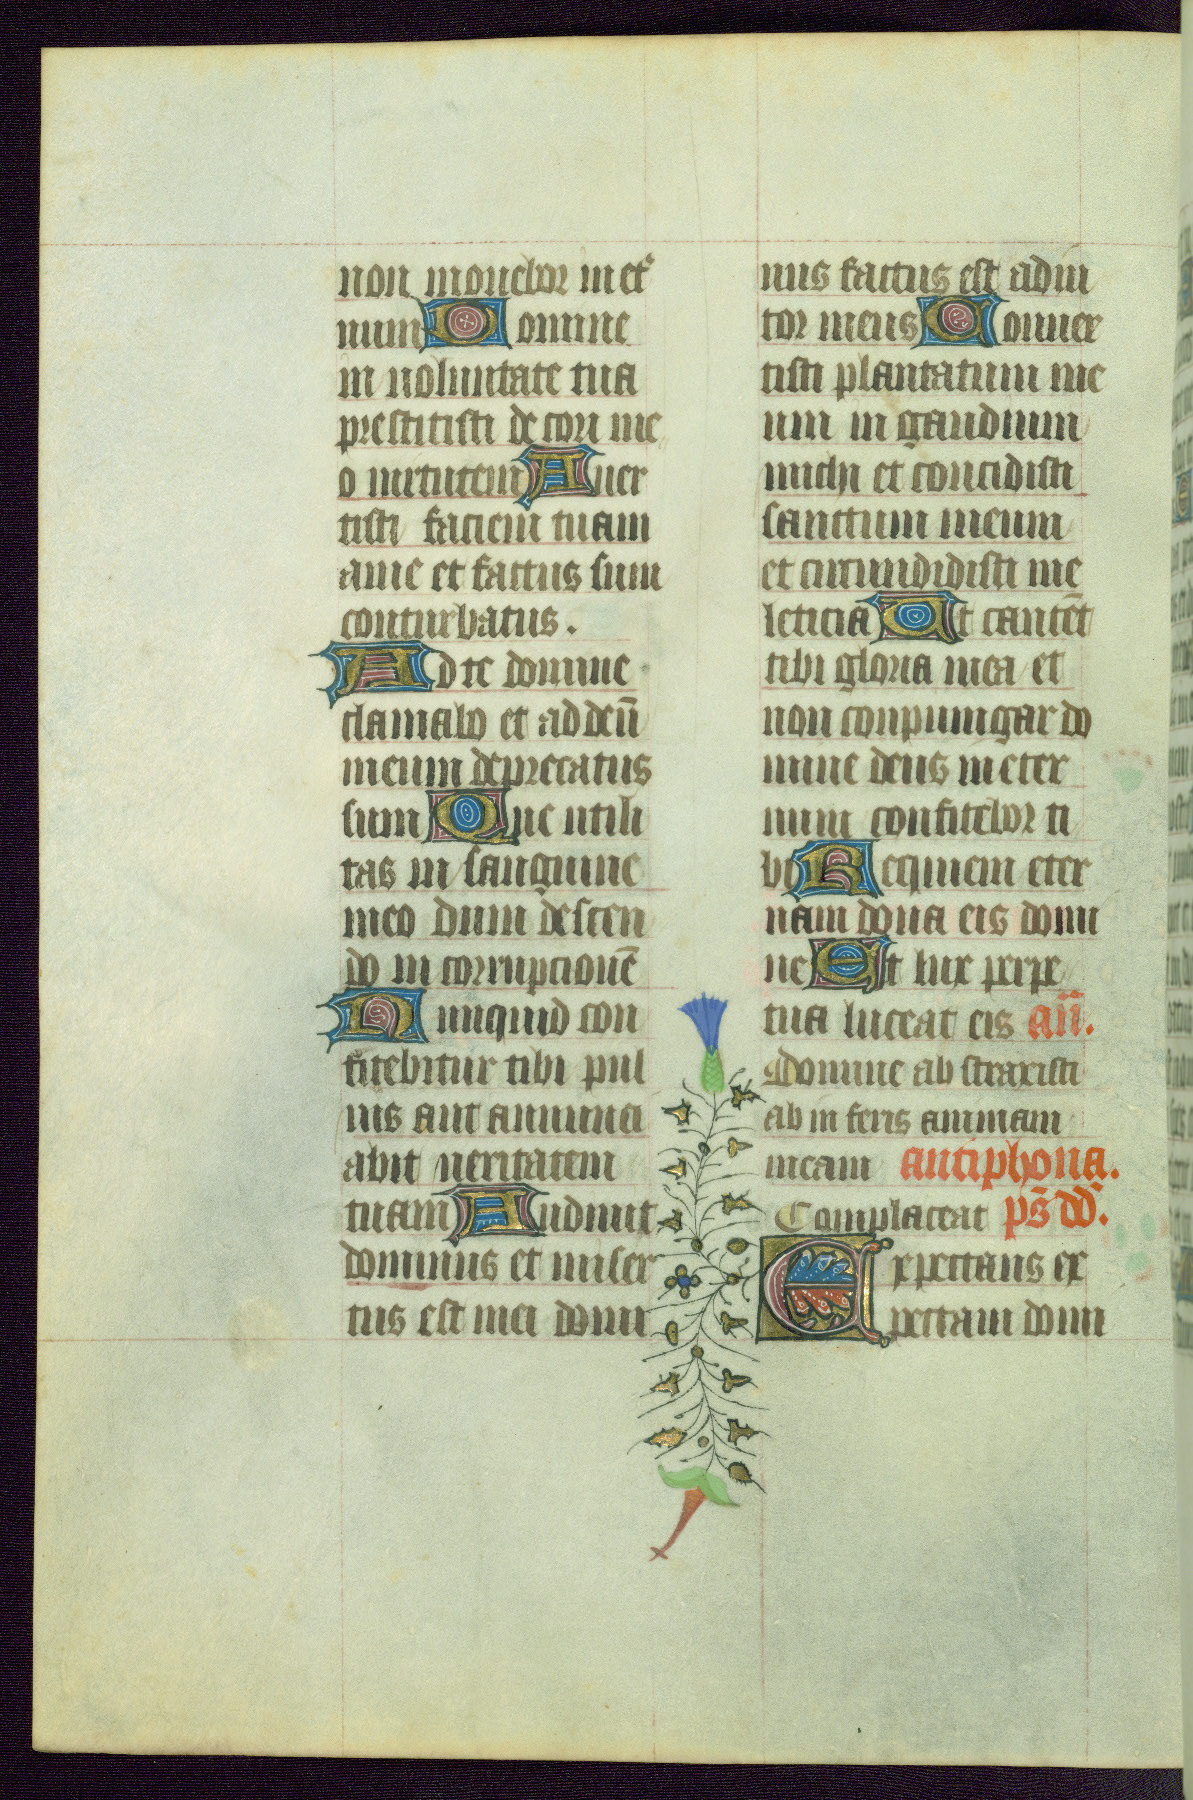 non mouebor in et͛
num Domine
in uoluntate tua
prestitisti decori me
o uirtutem Auer
tisti faciem tuam
ame et factus sum
conturbatus.
Ad te domine
clamabo et ad deū
meum deprecatus
sum Que utili
tas in sanguine
meo dum descen
do in corrupcionē
Nunquid con
fitebitur tibi pul
uis aut annunci
abit ueritatem
tuam Audiuit
dominus et miser
tus est mei domi
nus factus est adiu
tor meus Conuer
tisti planctum me
um in gaudium
michi et concidisti
sanctum meum
et circumdidisti me
leticia Ut cantēt
tibi gloria mea et
non conpumgar do
mine deus in eter
num confitebor ti
bi Requiem eter
nam dona eis domi
ne Et lux perpe
tua luceat eis añ.
Domine ab straxisti
ab in feris animam
meam antiphona.
Complaceat ps̄ dd̄.
Expectans ex
pectaui domi